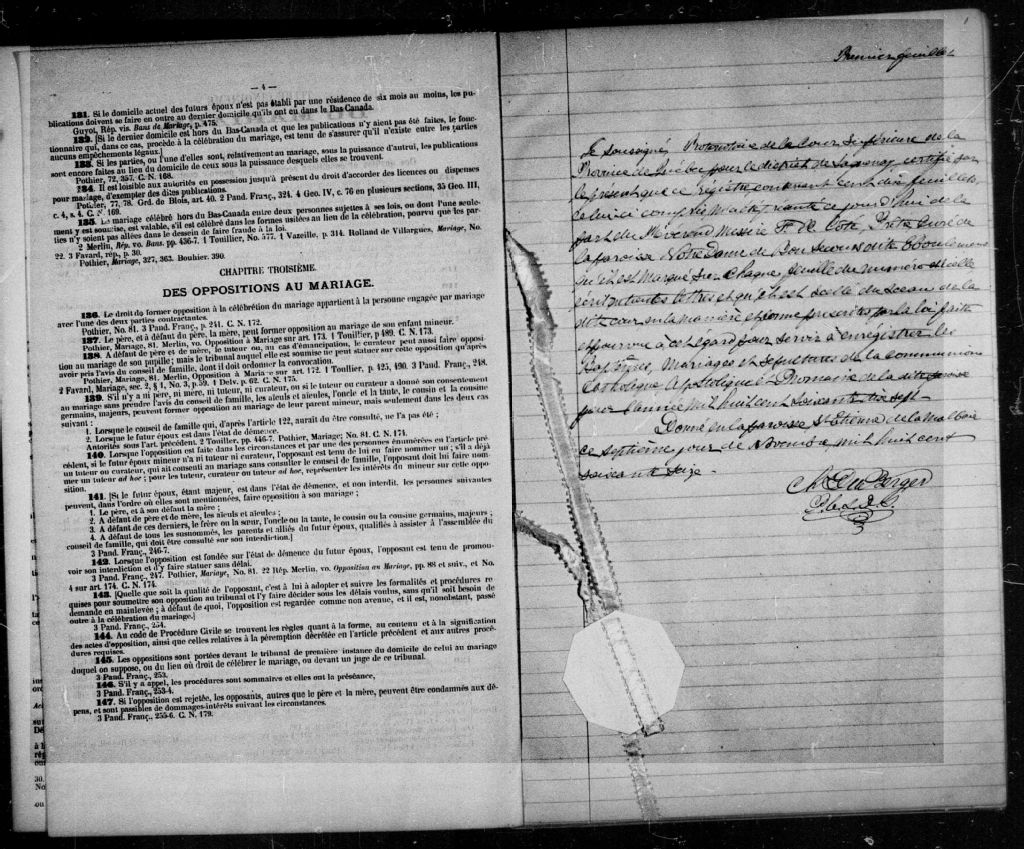 — 4 —
131. Si le domicile actuel des futurs époux n'est pas établi par une résidence de six mois au moins, les pu-
blications doivent se faire en outre au dernier domicile qu'ils ont eu dans le Bas-Canada.
Guyot, Rép. vis. Bans de Mariage, p. 475.
132. [Si le dernier domicile est hors du Bas-Canada et que les publications n'y aient pas été faites, le fonc-
tionnaire qui, dans ce cas, procède à la célébration du mariage, est tenu de s'assurer qu'il n'existe entre les parties
aucuns empêchements légaux.]
133. Si les parties, ou l'une d'elles sont, relativement au mariage, sous la puissance d'autrui, les publications
sont encore faites au lieu du domicile de ceux sous la puissance desquels elles se trouvent.
Pothier, 72, 357. C. N. 168.
134. Il est loisible aux autorités en possession jusqu'à présent du droit d'accorder des licences ou dispenses
pour mariage, d'exempter des dites publications.
Pothier, 77, 78. Grd. de Blois, art. 40. 2 Pand. Franç., 324. 4 Geo. IV, c. 76 en plusieurs sections, 35 Geo. III,
c. 4, s. 4. C. N. 169.
135. Le mariage célébré hors du Bas-Canada entre deux personnes sujettes à ses lois, ou dont l'une seule-
ment y est soumise, est valable, s'il est célébré dans les formes usitées au lieu de la célébration, pourvu que les par-
ties n'y soient pas allées dans le dessein de faire fraude à la loi.
2 Merlin, Rép. vo. Bans. pp. 436-7. 1 Touillier, No. 577. 1 Vazeille, p. 314. Rolland de Villargues, Mariage, No.
22. 3 Favard, rép., p. 30.
Pothier, Mariage, 327, 363. Bouhier. 390.
CHAPITRE TROISIÈME.
DES OPPOSITIONS AU MARIAGE.
136. Le droit de former opposition à la célébration du mariage appartient à la personne engagée par mariage
avec l'une des deux parties contractantes.
Pothier, No. 81. 3 Pand. Franç., p. 241. C. N. 172.
137. Le père, et à défaut du père, la mère, peut former opposition au mariage de son enfant mineur.
Pothier, Mariage, 81. Merlin, vo. Opposition à Mariage sur art. 173. 1 Touillier, p 489. C. N. 173.
138. A défaut de père et de mère, le tuteur ou, au cas d'émancipation, le curateur peut aussi faire opposi-
tion au mariage de son pupille; mais le tribunal auquel elle est soumise ne peut statuer sur cette opposition qu'après
avoir pris l'avis du conseil de famille, dont il doit ordonner la convocation.
Pothier, Mariage, 81. Merlin, Opposition à Mariage sur art. 172. 1 Toullier, p. 425, 490. 3 Pand. Franç., 248.
2 Favard, Mariage, sec. 2, § 1, No. 3, p.59. 1 Delv. p. 62. C. N. 175.
139. S'il n'y a ni père, ni mère, ni tuteur, ni curateur, ou si le tuteur ou curateur a donné son consentement
au mariage sans prendre l'avis du conseil de famille, les aïeuls et aïeules, l'oncle et la tante, le cousin et la cousine
germains, majeurs, peuvent former opposition au mariage de leur parent mineur, mais seulement dans les deux cas
suivant :
1. Lorsque le conseil de famille qui, d'après l'article 122, aurait du être consulté, ne l'a pas été ;
2. Lorsque le futur époux est dans l'état de démence.
Autorités sous l'art. précédent. 2 Touillier. pp. 446-7. Pothier, Mariage; No. 81. C. N. 174.
140. Lorsque l'opposition est faite dans les circonstances et par une des personnes énumérées en l'article pré-
cédent, si le futur époux mineur n'a ni tuteur ni curateur, l'opposant est tenu de lui en faire nommer un ; s'il a déjà
un tuteur ou curateur, qui ait consenti au mariage sans consulter le conseil de famille, l'opposant doit lui faire nom-
mer un tuteur ad hoc ; pour les tuteur, curateur ou tuteur ad hoc, représenter les intérêts du mineur sur cette oppo-
sition.
141. [Si le futur époux, étant majeur, est dans l'état de démence, et non interdit, les personnes suivantes
peuvent, dans l'ordre où elles sont mentionnées, faire opposition à son mariage ;
1. Le père, et à son défaut la mère ;
2. A défaut de père et de mère, les aïeuls et aïeules ;
3. A défaut de ces derniers, le frère ou la sœur, l'oncle ou la tante, le cousin ou la cousine germains, majeurs ;
4. A défaut de tous les susnommés, les parents et alliés du futur époux, qualifiés à assister à l'assemblée du
conseil de famille, qui doit être consulté sur son interdiction.]
3 Pand. Franç., 246-7.
142. Lorsque l'opposition est fondée sur l'état de démence du futur époux, l'opposant est tenu de promou-
voir son interdiction et d'y faire statuer sans délai.
3 Pand. Franç., 247. Pothier, Mariage, No. 81. 22 Rép. Merlin, vo. Opposition au Mariage, pp. 88 et suiv., et No.
4 sur art. 174. C. N. 174.
143. [Quelle que soit la qualité de l'opposant, c'est à lui à adopter et suivre les formalités et procédures re
quises pour soumettre son opposition au tribunal et l'y faire décider sous les délais voulus, sans qu'il soit besoin de
demande en mainlevée ; à défaut de quoi, l'opposition est regardée comme non avenue, et il est, nonobstant, passé
outre à la célébration du mariage.]
3 Pand. Franç., 254.
144. Au code de Procédure Civile se trouvent les règles quant à la forme, au contenu et à la signification
des actes d'opposition, ainsi que celles relatives à la péremption décrétée en l'article précédent et aux autres procé-
dures requises.
145. Les oppositions sont portées devant le tribunal de première instance du domicile de celui au mariage
duquel on suppose, ou du lieu où droit de célébrer le mariage, ou devant un juge de ce tribunal.
3 Pand. Franç., 253.
146. S'il y a appel, les procédures sont sommaires et elles ont la préséance,
3 Pand. Franç., 253-4.
147. Si l'opposition est rejetée, les opposants, autres que le père et la mère, peuvent être condamnés aux dé-
pens, et sont passibles de dommages-intérêts suivant les circonstances.
3 Pand. Franç., 255-6. C. N. 179.
Premier feuillet
Je soussigné Protonotaire de la Cour Supérieure de la
Province de Québec pour le district de Saguenay certifie par
le présent que ce registre contenant cent dix feuillets,
celui ci compris m'a été présenté ce jour d'hui de la
part du Révérend Messire F. C. Coté, Prêtre Curé de
la paroisse Notre Dame de Bon Secours des Eboulements
qu'il est marqué sur chaque feuille du numéro d'icelle
écrit en toutes lettres et qu'il est scellé du sceau de la
dite cour en la manière et forme prescrites par la loi faite
et pourvue à cet égard pour servir à enregistrer les
Baptêmes, Mariages et Sépultures de la communion
Catholique Apostolique et Romaine de la dite paroisse
pour l'année mil huit cent soixante dix sept
Donné en la paroisse St Etienne de la Malbaie
ce septième jour de Novembre mil huit cent
soixante seize.
Chs Du Berger
P.C.S.D.S.